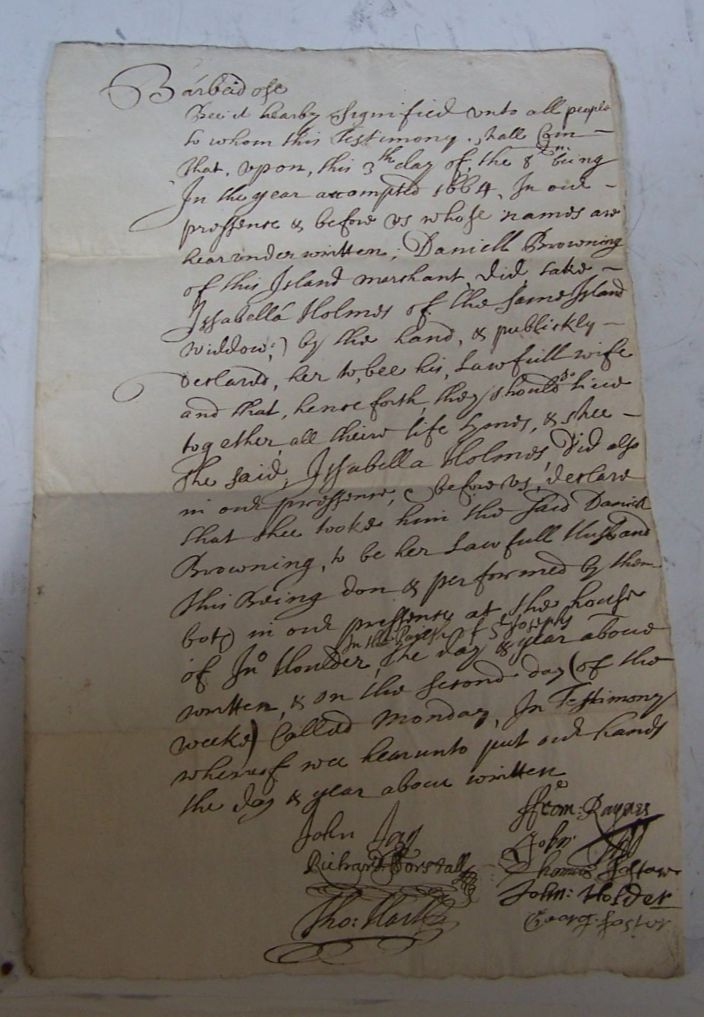 Barbadose
Bee it hearby Signified vnto all people
to whom this Testimony shall Com
that, vpon, this 3th day of, the 8th mo. being
In the year accompted 1664, In our
pressence & before vs whose names are
hearvnder written, Daniell Browning
of this Island merchant, did, take
Issabella Holmes of the same Island
widdow;) by the hand, & publickly
declared, her to, bee his, Lawfull wife
and that, hence forth, they should Liue
together, all theire life tymes, & shee
the said, Issabella Holmes, Did also
in our pressence, & before vs, declare
that shee tooke him the said Daniell
Browning, to be her Lawfull Husband
this Being don & performed by them
both in our pressence at the house
In the Parish of St Josephs
of Jno Houlder, the day & year aboue
written, & on the second day (of the
weeke) Called Monday, In Testimony
whereof wee hearunto put our hands
the day & year aboue written
John Jay
Richard Forstall
Tho: Hart
Raynes
John
Thomas Fostar
John: Holder
Georg: Foster